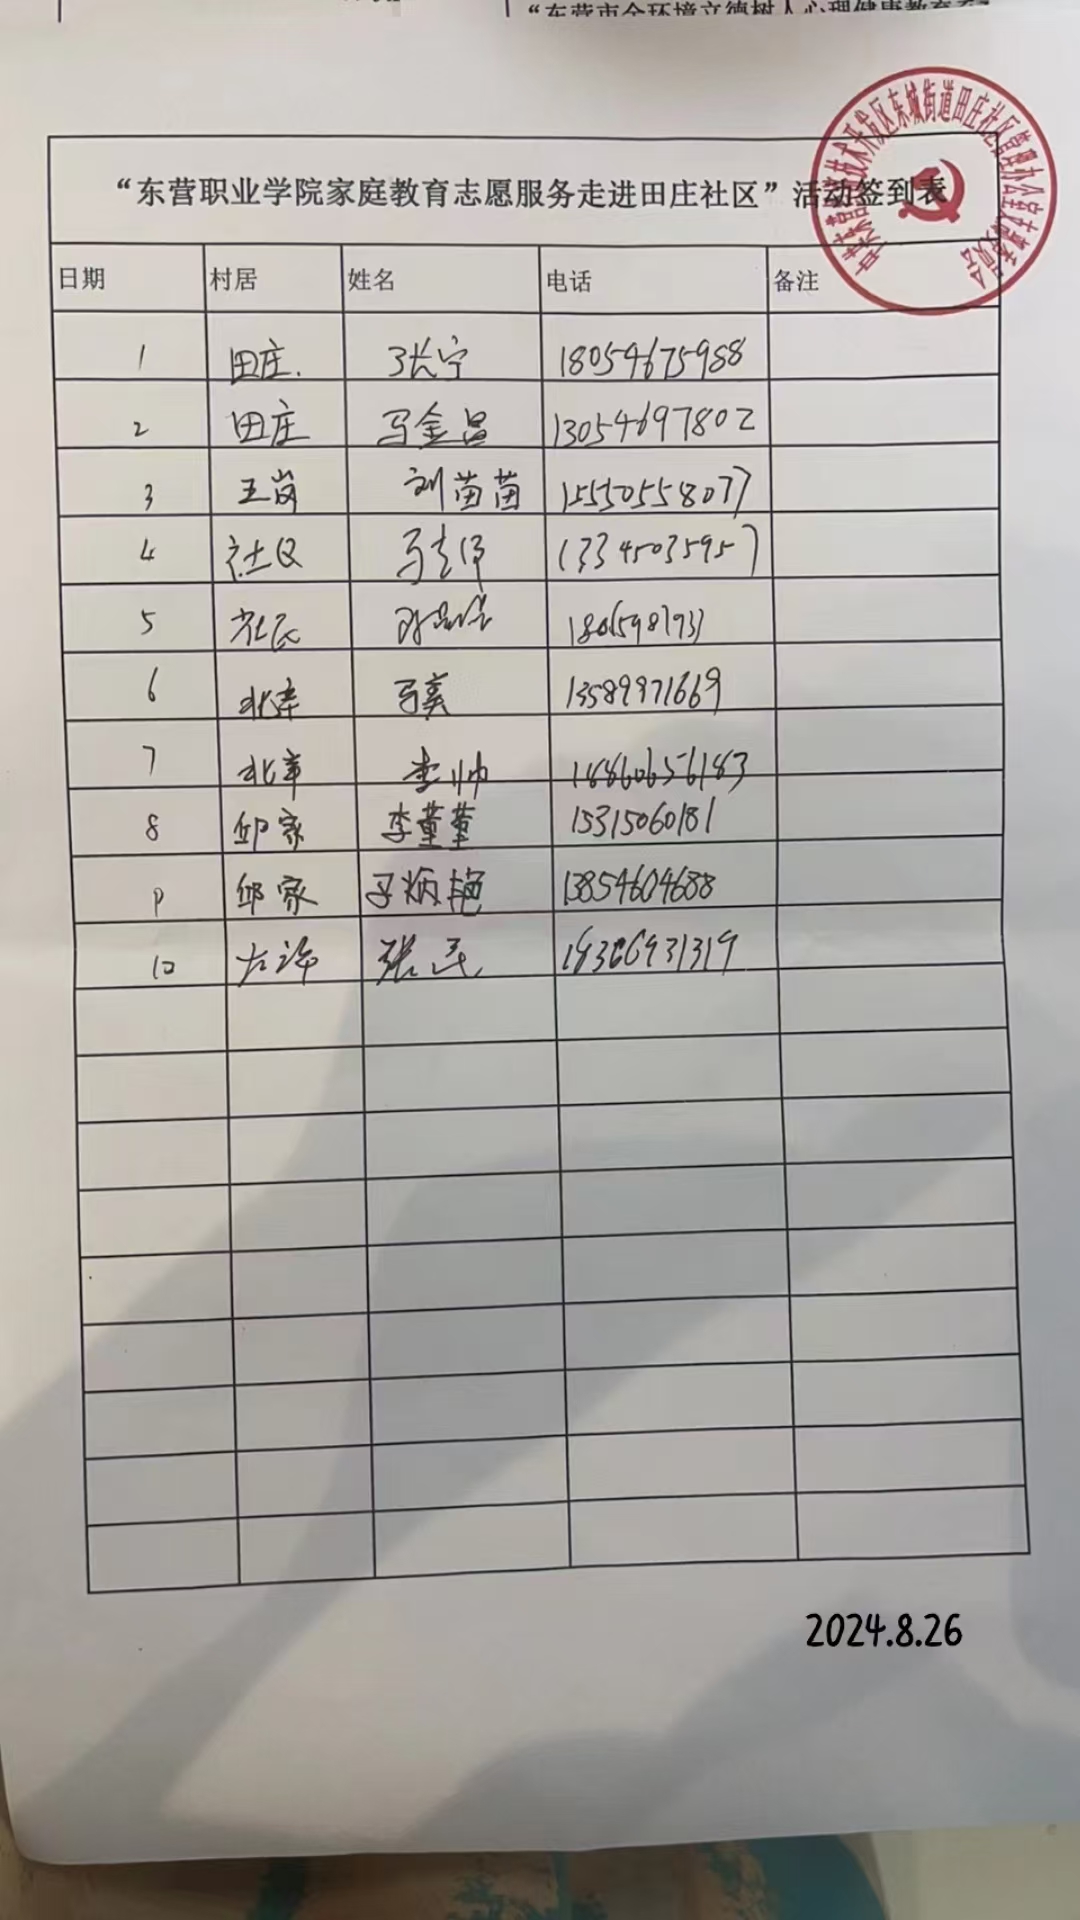 “东营市全环境立德树人心理健康教育
“东营职业学院家庭教育志愿服务走进田庄社区”活动签到表
日期 村居 姓名 电话 备注
1 田庄. 张宁 18054675988
2 田庄 马金昌 13054697802
3 王岗 刘苗苗 15550558077
4 社区 13345035957
5
6 马英 13589971669
7 李帅 18860656183
8 邱家 李董董 15315060181
9 邱家 炳艳 13854604688
10 张 19366931319
2024.8.26